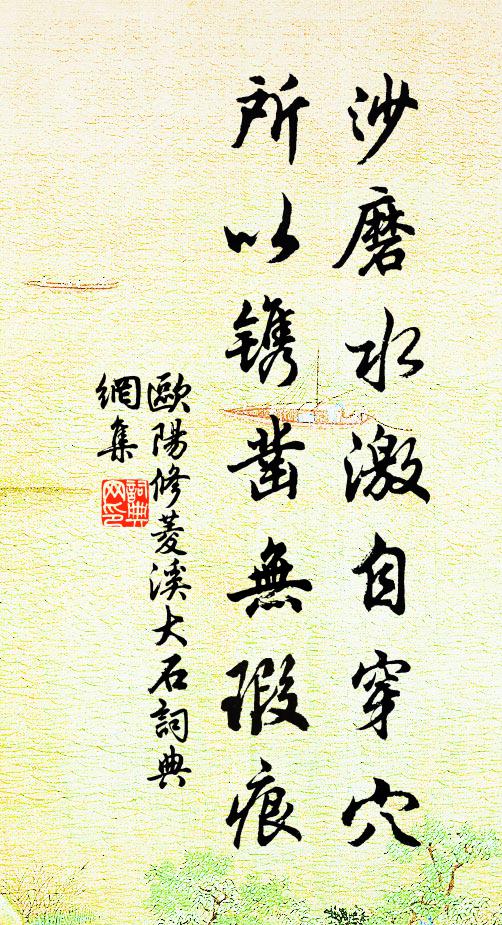 沙磨水激自穿穴
所以鐫鑿無瑕痕
歐陽修菱溪大石詞典
網集
詞典
网印